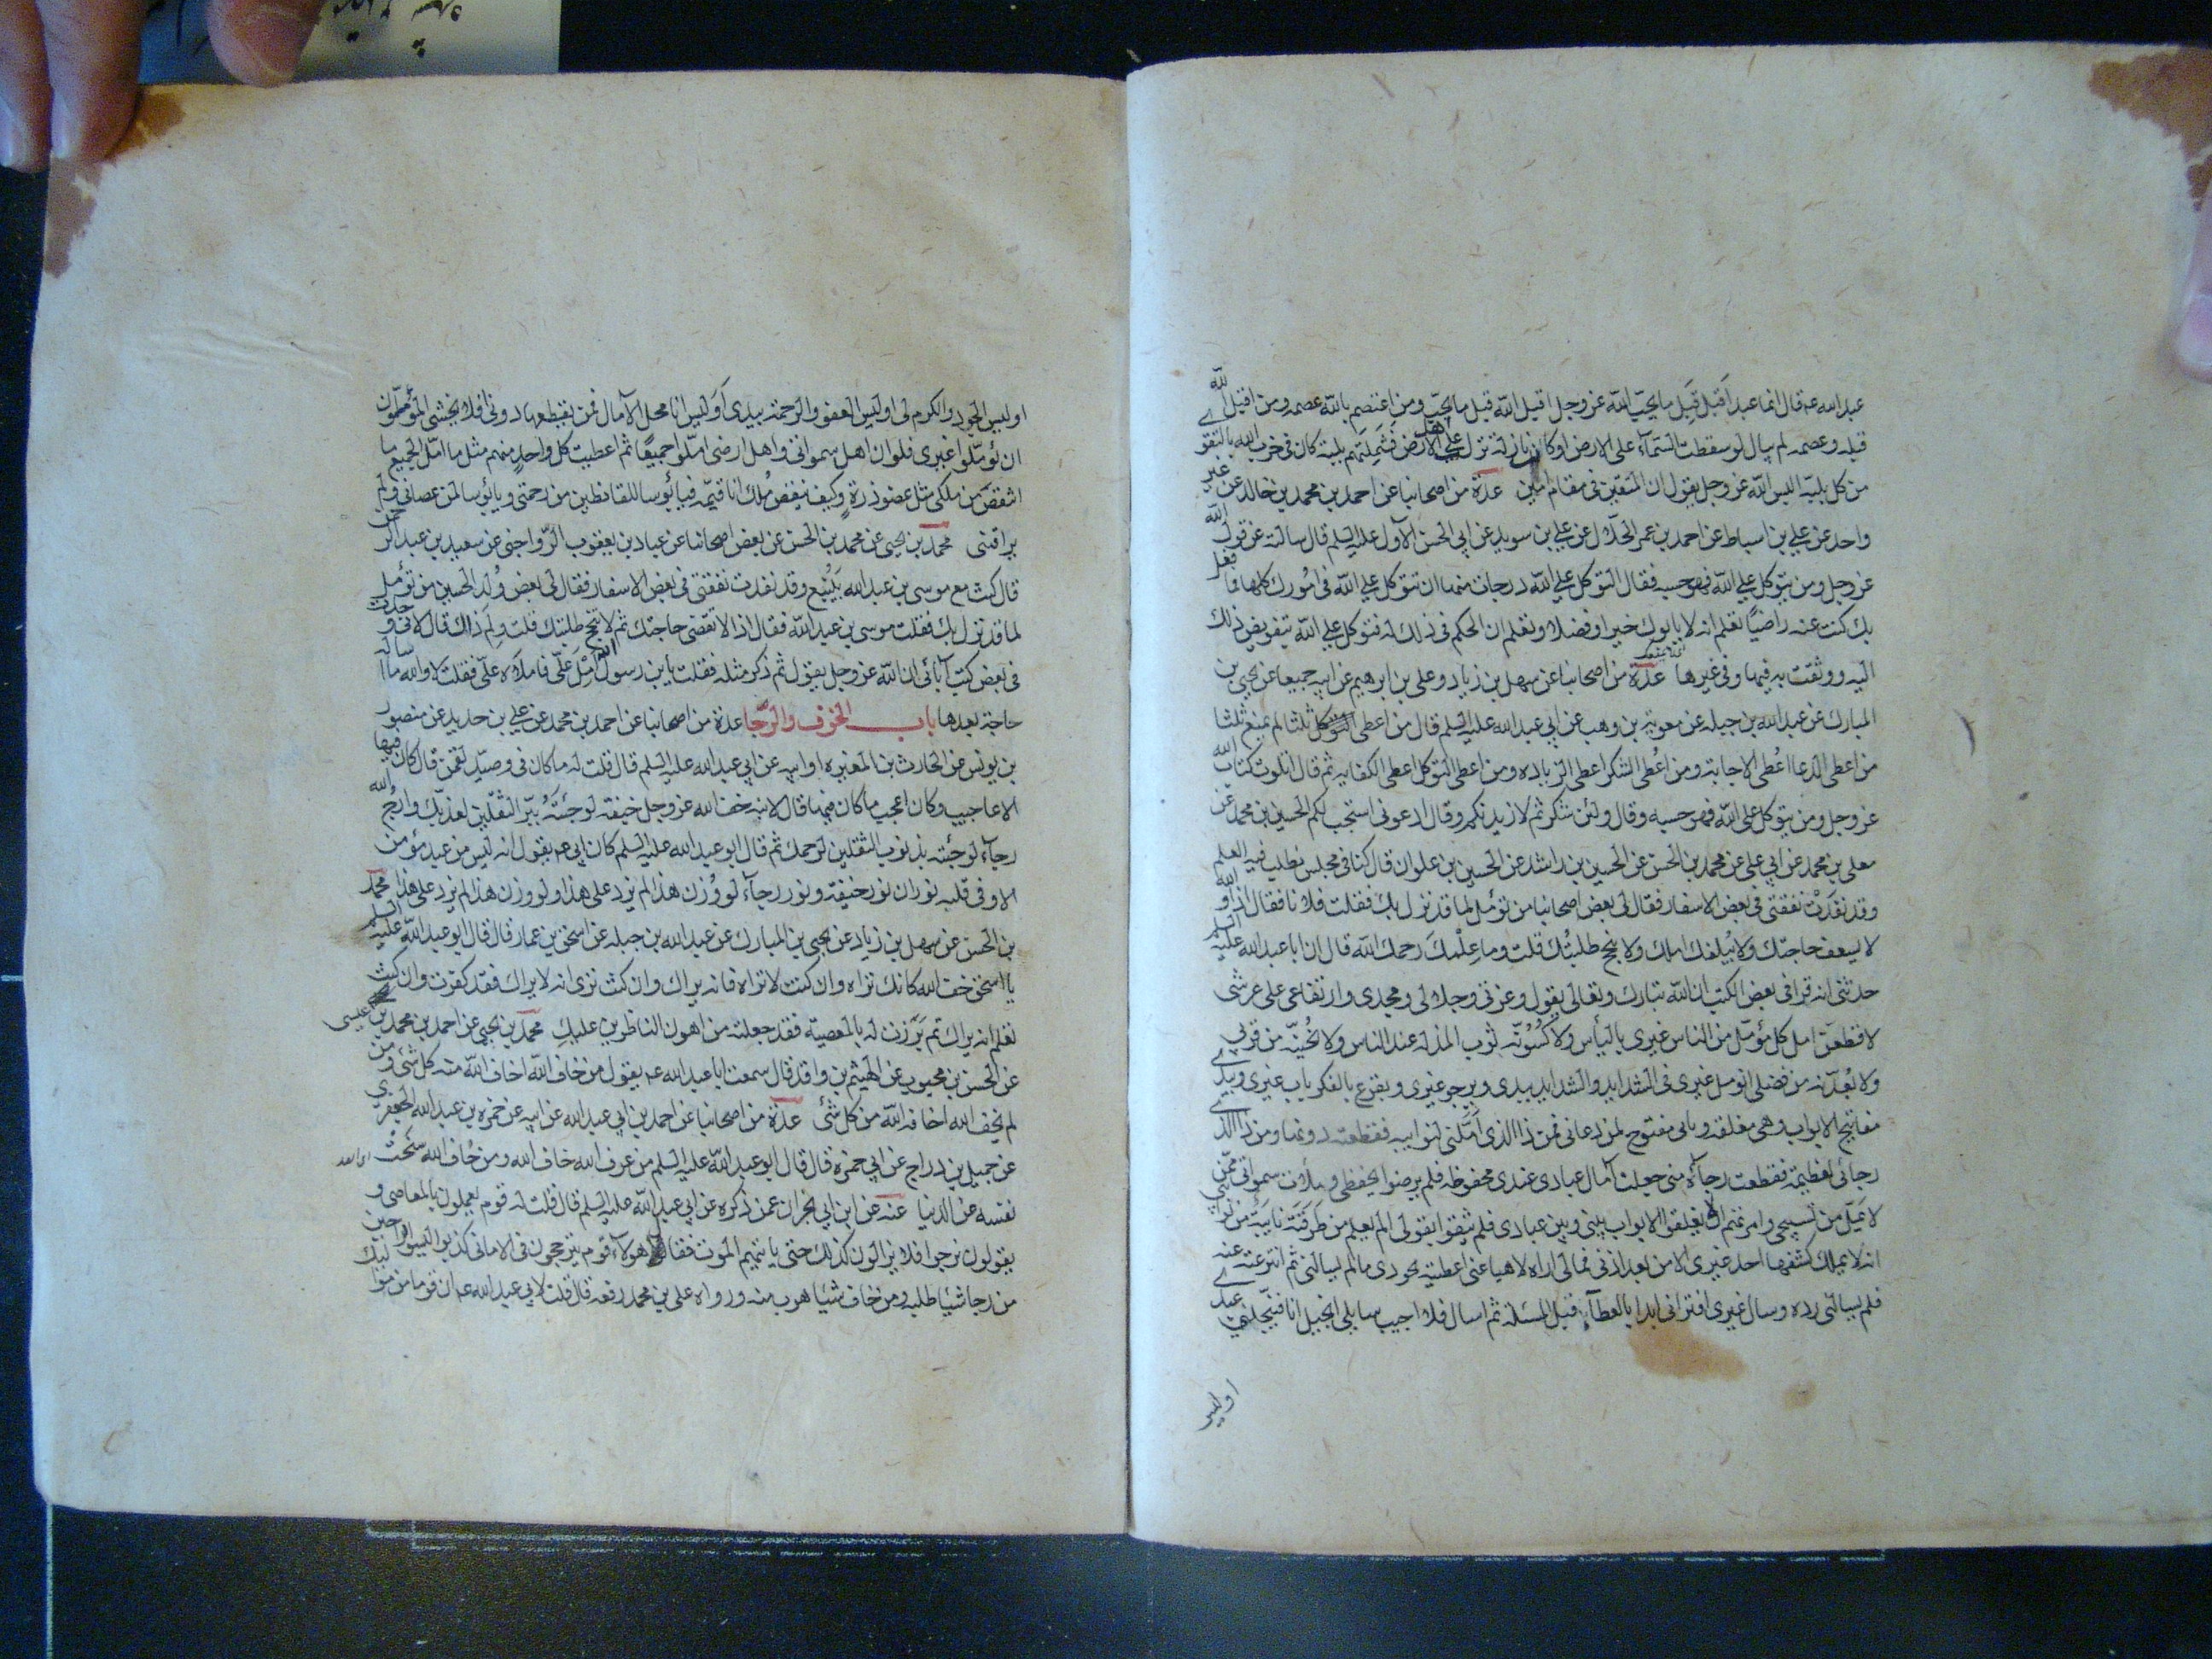 عبد الله عه قال انما عبد اقبل قبل ما يحب الله عز وجل اقبل الله قبل ما يحب ومن اعتصم بالله عصمه ومن اقبل الله
قبله وعصمه لم يبال لو سقطت السماء على الارض او كان نازلة نزل على اهل الارض فشملتهم بلية كان في حزب الله بالتقوى
من كل بلية اليس الله عز وجل يقول ان المتقين في مقام امين عدة من اصحابنا عن احمد بن محمد بن خالد عن غير
واحد عن علي بن اسباط عن احمد بن عمر الحلال عن علي بن سويد عن ابي الحسن الاول عليه السلم قال سالته عن قول الله
عز وجل ومن يتوكل على الله فهو حسبه فقال التوكل على الله درجات منها ان تتوكل على الله في امورك كلها فما فعل
بك كنت عنه راضيا تعلم انه لا يالوك خيرا وفضلا وتعلم ان الحكم في ذلك له فتوكل على الله بتفويض ذلك
اليه ووثقت به فيها وفي غيرها عدة من اصحابنا عن سهل بن زياد وعلي بن ابرهيم عن ابيه جميعا عن يحيى بن
المبارك عن عبد الله بن جبله عن معوية بن وهب عن ابي عبد الله عليه السلم قال من اعطى ثلثا لم يمنع ثلثا
من اعطى الدعا اعطى الاجابة ومن اعطى الشكر اعطى الزياده ومن اعطى التوكل اعطى الكفايه ثم قال اتلوت كتاب الله
عز وجل ومن يتوكل على الله فهو حسبه وقال ولئن شكرتم لازيدنكم وقال ادعوني استجب لكم الحسين بن محمد عن
معلى بن محمد عن ابي علي عن محمد بن الحسن عن الحسين بن راشد عن الحسين بن علوان قال كنا في مجلس نطلب فيه العلم
وقد نفدت نفقتي في بعض الاسفار فقال لي بعض اصحابنا من تؤمل لما قد نزل بك فقلت فلانا فقال اذا والله
لا يسعف حاجتك ولا يبلغك املك ولا ينجح طلبتك قلت وما علمك رحمك الله قال ان ابا عبد الله عليه السلم
حدثني انه قرا في بعض الكتب ان الله تبارك وتعالى يقول وعزتي وجلالي ومجدي وارتفاعي على عرشي
لاقطعن امل كل مؤمل من الناس غيري بالياس ولاكسونه ثوب المذلة عند الناس ولانحينه من قربي
ولابعدنه من فضلي ايؤمل غيري في الشدايد والشدايد بيدي ويرجو غيري ويقرع بالفكر باب غيري وبيدي
مفاتيح الابواب وهي مغلقه وبابي مفتوح لمن دعاني فمن ذا الذي املني لنوايبه فقطعته دونها ومن ذا الذي
رجاني لعظيمة فقطعت رجاءه مني جعلت آمال عبادي عندي محفوظه فلم يرضوا بحفظي وملأت سمواتي ممن
لا يمل من تسبيحي وامرتهم ان لا يغلقوا الابواب بيني وبين عبادي فلم يثقوا بقولي الم يعلم من طرقته نايبة من نوايبي
انه لا يملك كشفها احد غيري الا من بعد اذني فمالي اراه لاهيا عني اعطيته بجودي ما لم يسالني ثم انتزعته عنه
فلم يسالني رده وسال غيري افتراني ابدا بالعطاء قبل المسئلة ثم اسال فلا اجيب سايلي ابخيل انا فيبخلني عبدي
اوليس
اوليس الجود والكرم لي اوليس العفو والرحمة بيدي اوليس انا محل الآمال فمن يقطعها دوني افلا يخشى المؤملون
ان يؤملوا غيري فلو ان اهل سمواتي واهل ارضي املوا جميعا ثم اعطيت كل واحد منهم مثل ما امل الجميع ما
انتقص من ملكي مثل عضو ذرة وكيف ينقص ملك انا قيمه فيا بؤسا للقانطين من رحمتي ويا بؤسا لمن عصاني ولم
يراقبني محمد بن يحيى عن محمد بن الحسن عن بعض اصحابنا عن عباد بن يعقوب الرواجني عن سعيد بن عبد الرحمن
قال كنت مع موسى بن عبد الله بينبع وقد نفدت نفقتي في بعض الاسفار فقال لي بعض ولد الحسين من تؤمل
لما قد نزل بك فقلت موسى بن عبد الله فقال اذا لا تقضى حاجتك ثم لا تنجح طلبتك قلت ولم ذاك قال لاني وجدت
في بعض كتب آبائي ان الله عز وجل يقول ثم ذكر مثله فقلت يابن رسول الله امل علي فاملاه علي فقلت لا والله ما اساله
حاجة بعدها باب الخوف والرجا عدة من اصحابنا عن احمد بن محمد عن علي بن حديد عن منصور
بن يونس عن الحارث بن المغيره او ابيه عن ابي عبد الله عليه السلم قال قلت له ما كان في وصية لقمن قال كان فيها
الاعاجيب وكان اعجب ما كان فيها قال لابنه خف الله عز وجل خيفة لو جئته ببر الثقلين لعذبك وارج الله
رجاء لو جئته بذنوب الثقلين لرحمك ثم قال ابو عبد الله عليه السلم كان ابي عه يقول انه ليس من عبد مؤمن
الا وفي قلبه نوران نور خيفة ونور رجاء لو وزن هذا لم يزد على هذا ولو وزن هذا لم يزد على هذا محمد
بن الحسن عن سهل بن زياد عن يحيى بن المبارك عن عبد الله بن جبله عن اسحق بن عمار قال قال ابو عبد الله عليه السلم
يا اسحق خف الله كانك تراه وان كنت لا تراه فانه يراك وان كنت ترى انه لا يراك فقد كفرت وان كنت
تعلم انه يراك ثم برزت له بالمعصية فقد جعلته من اهون الناظرين عليك محمد بن يحيى عن احمد بن محمد بن عيسى
عن الحسن بن محبوب عن الهيثم بن واقد قال سمعت ابا عبد الله عه يقول من خاف الله اخاف الله منه كل شئ ومن
لم يخف الله اخافه الله من كل شئ عدة من اصحابنا عن احمد بن ابي عبد الله عن ابيه عن حمزه بن عبد الله الجعفري
عن جميل بن دراج عن ابي حمزة قال قال ابو عبد الله عليه السلم من عرف الله خاف الله ومن خاف الله سخت
نفسه عن الدنيا عنه عن ابن ابي نجران عمن ذكره عن ابي عبد الله عليه السلم قال قلت له قوم يعملون بالمعاصي و
يقولون نرجوا فلا يزالون كذلك حتى ياتيهم الموت فقال هولاء قوم يترجحون في الاماني كذبوا ليسوا راجين
من رجا شيئا طلبه ومن خاف شيئا هرب منه ورواه علي بن محمد رفعه قال قلت لابي عبد الله عه ان قوما من مواليك